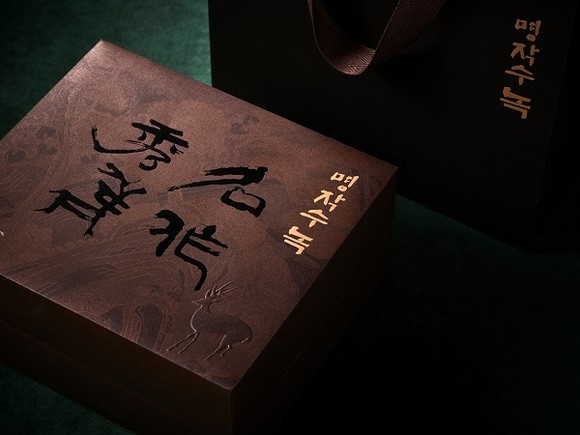 명작수녹
명작수녹
名作
秀鹿